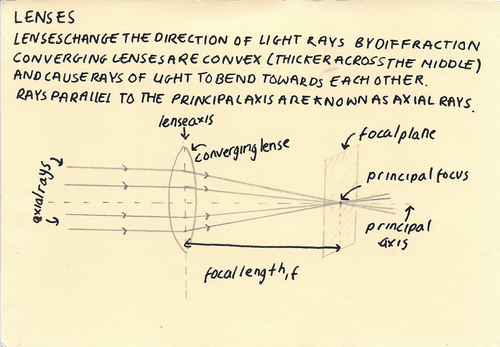 LENSES
LENSES CHANGE THE DIRECTION OF LIGHT RAYS BY DIFFRACTION
CONVERGING LENSES ARE CONVEX (THICKER ACROSS THE MIDDLE)
AND CAUSE RAYS OF LIGHT TO BEND TOWARDS EACH OTHER.
RAYS PARALLEL TO THE PRINCIPAL AXIS ARE KNOWN AS AXIAL RAYS.
lense axis
converging lense
focal plane
principal focus
axial rays
principal
axis
focal length, f